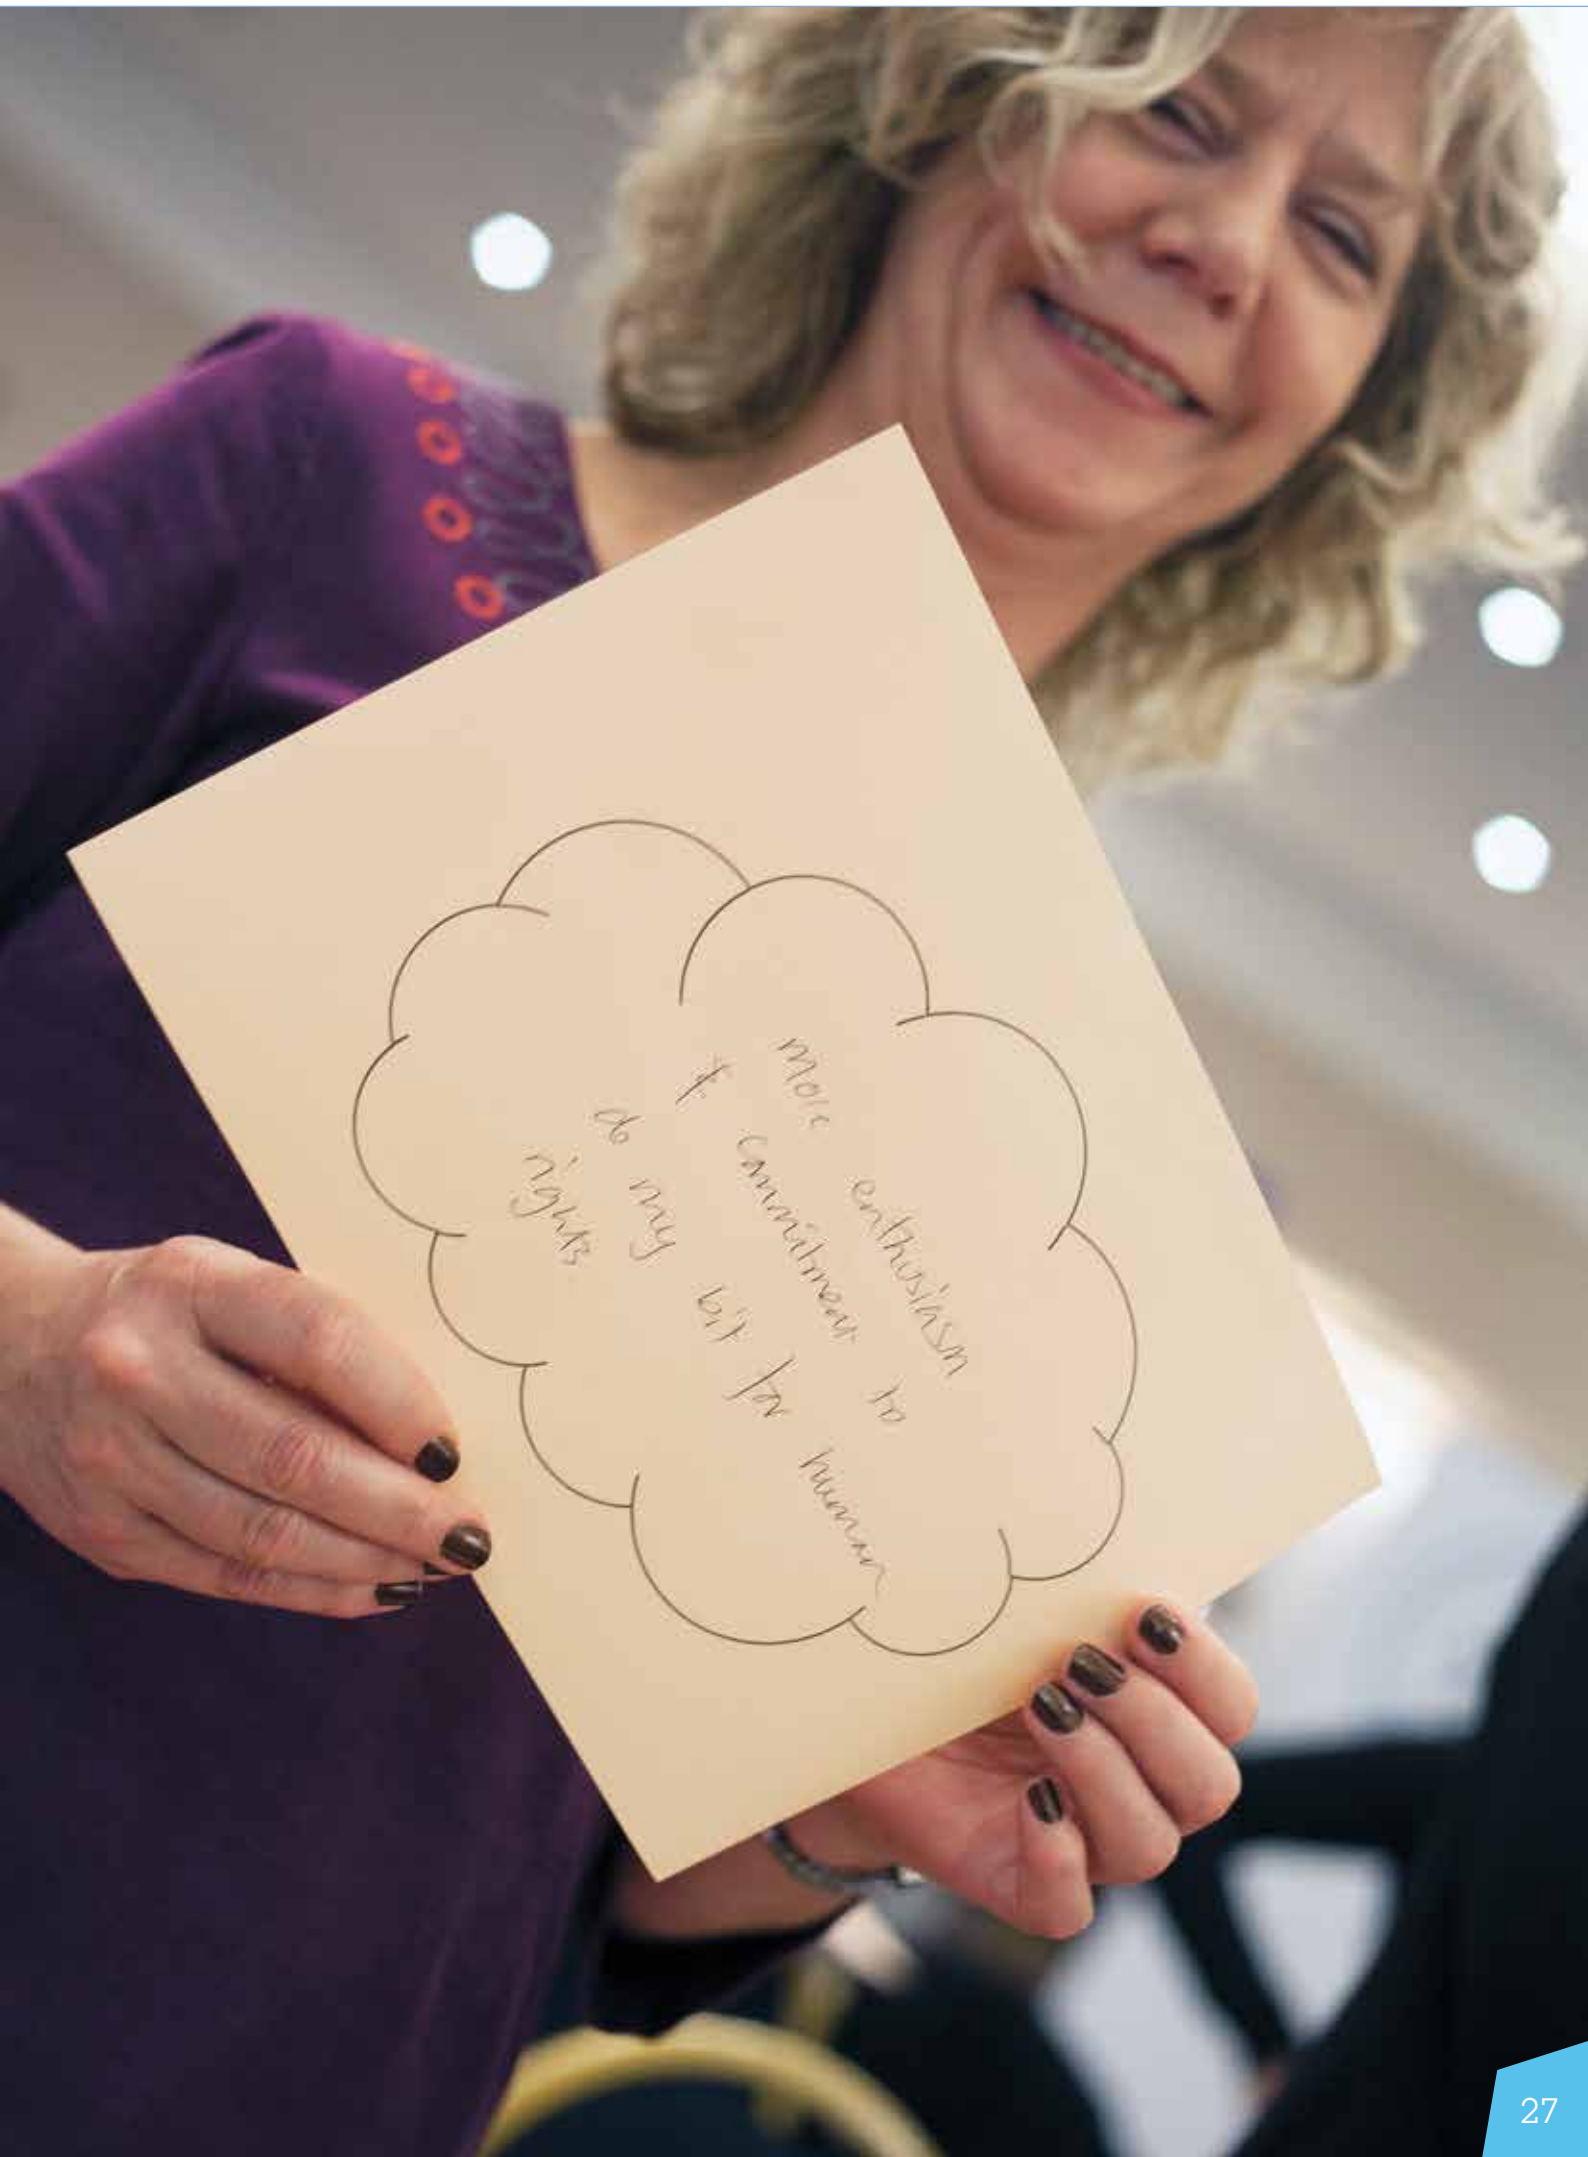 more enthusiasm
& commitment to
do my bit for human
rights.
27